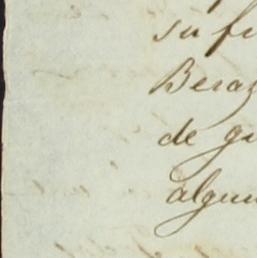 su fi
Beraz
de gu
algun